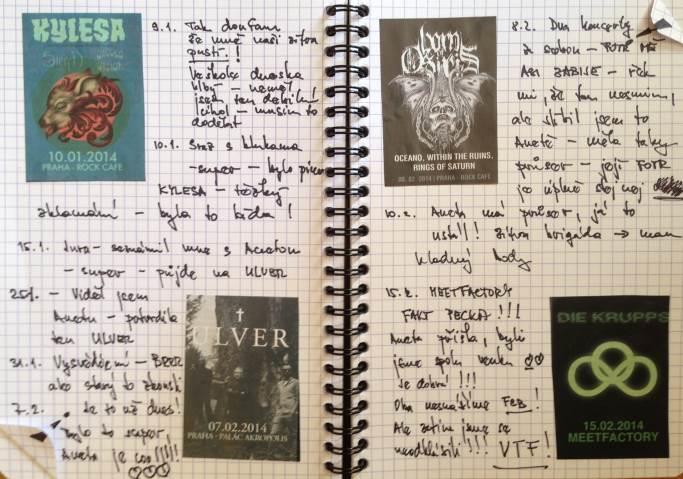 KYLESA
10.01.2014
PRAHA - ROCK CAFE
9.1. Tak doufám
že mně naši zítra
pustí!
Ve škole dneska
blbý - neměl
jsem ten
úkol - musím to
dodělat
10.1. Sraz s klukama
- super - bylo
KYLESA - těžký
zklamání - byla to bída!
15.1. Jura - seznámil mne s Anetou
- super - půjde na ULVER
25.1. - Viděl jsem
Anetu - potvrdila
ten ULVER
31.1. Vysvědčení - BRRR
ako starý to
7.2. Je to už dnes!
Bylo to super
Aneta je
ULVER
07.02.2014
PRAHA - PALÁC AKROPOLIS
born of OSIRIS
OCEANO, WITHIN THE RUINS,
RINGS OF SATURN
08.02.2014 | PRAHA - ROCK CAFE
8.2. Dva koncerty
za sebou - FOTR MĚ
ASI ZABIJE - řek
mi, že tam nesmím,
ale slíbil jsem to
Anetě - měla taky
průser - její FOTR
je úplně stejnej
10.2. Aneta má průser, já to
ustál! Zítra brigáda → mam
kladný body
15.2. MEETFACTORY
FAKT PECKA!!!
Aneta přišla, byli
jsme spolu venku
Je dobrá!!!
Oba nesnášíme FCB!
Ale zatím jsme se
neodhlásili!!! VTF!
DIE KRUPPS
15.02.2014
MEETFACTORY